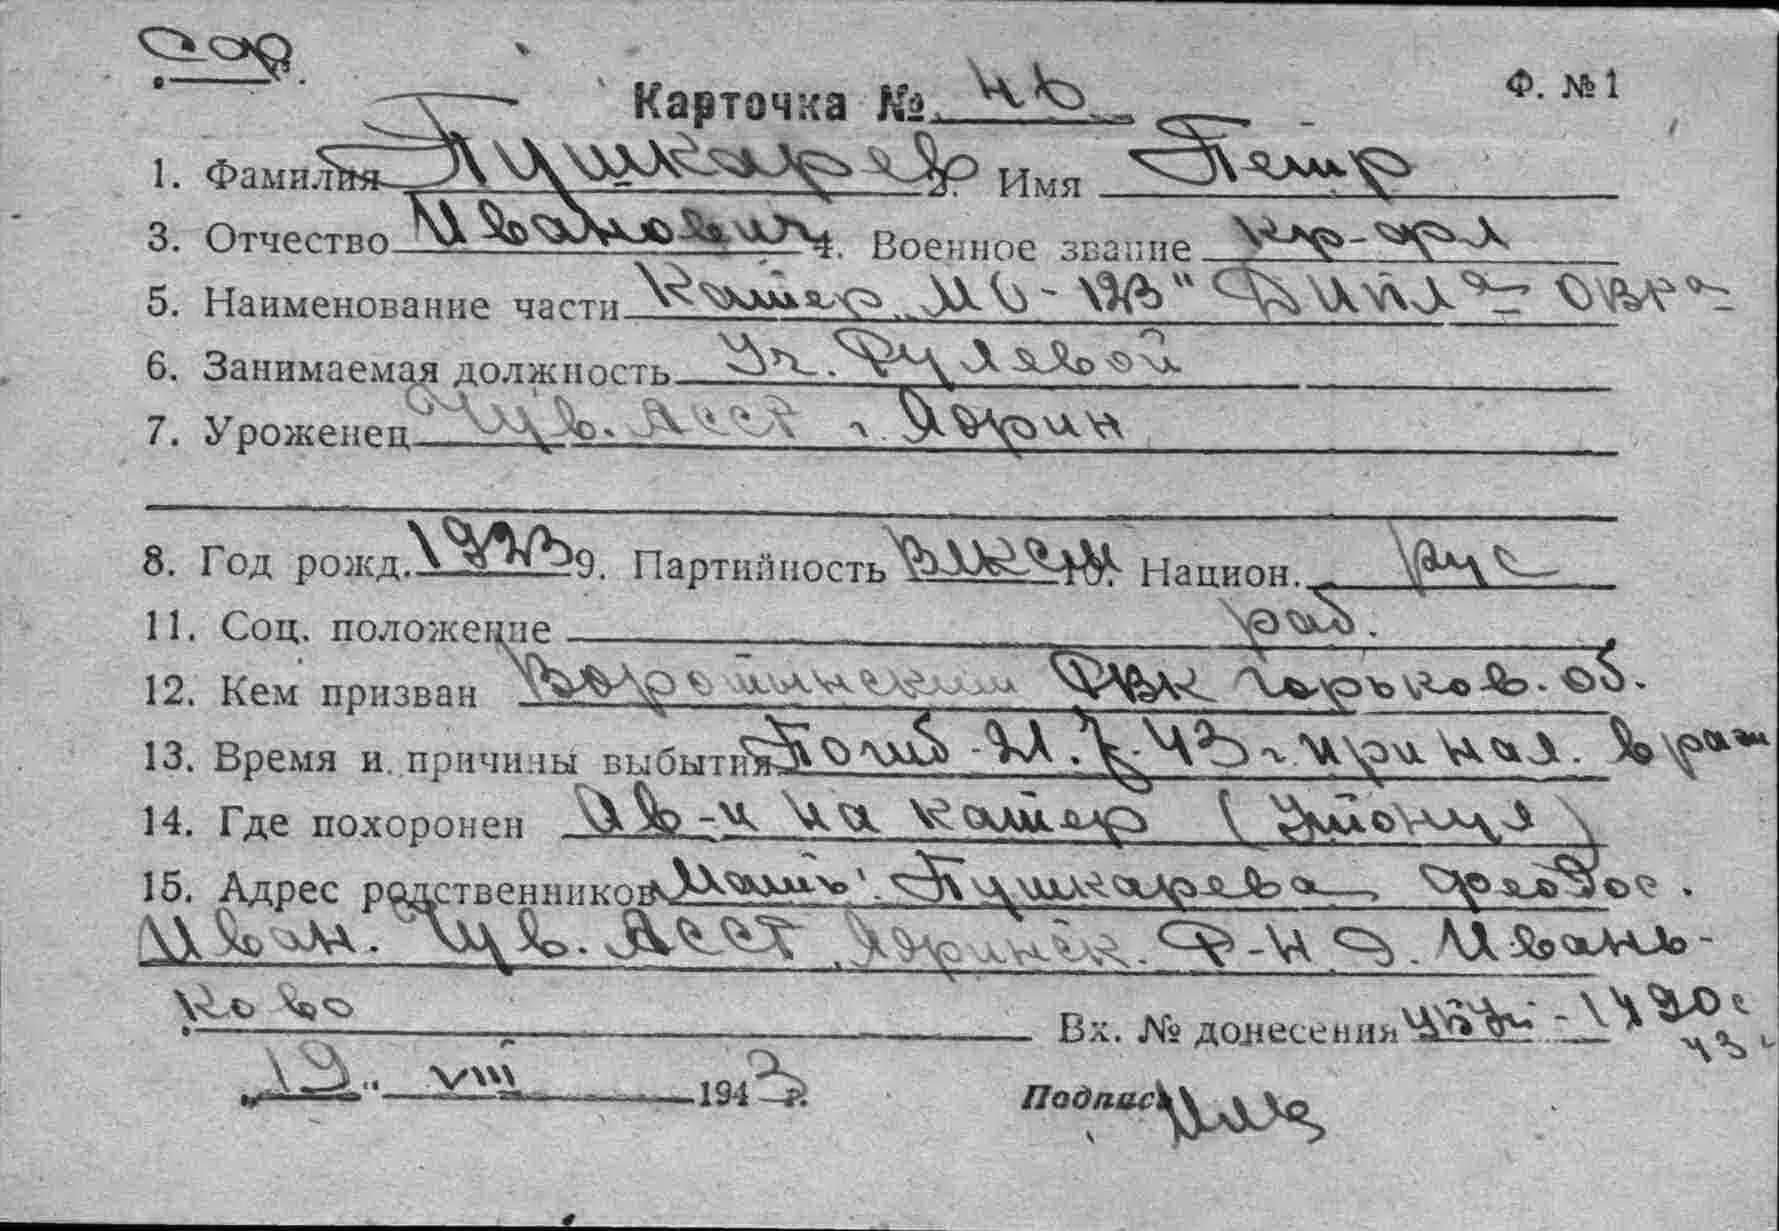 Карточка № 46
Ф. № 1
1. Фамилия Пушкарев 2. Имя Петр
3. Отчество Иванович 4. Военное звание кр-фл
5. Наименование части Катер „МО-123" ДИПЛа ОВРа
6. Занимаемая должность Уч. Рулевой
7. Уроженец Чув. АССР г. Ядрин
8. Год рожд. 1923 9. Партийность ВЛКСМ 10. Национ. рус
11. Соц. положение раб.
12. Кем призван Воротынским РВК Горьков. об.
13. Время и причины выбытия Погиб 21.7.43 г. при нал. враж
14. Где похоронен ав-и на катер (Утонул)
15. Адрес родственников Мать: Пушкарева Феодос.
Иван. Чув. АССР Ядринск. Р-н д. Ивань-
ково
Вх. № донесения 1490с
43г
„19" VIII 1943 г. Подпись